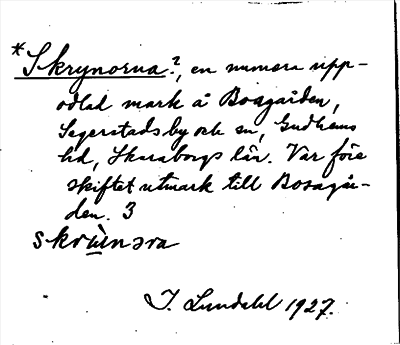 *Skrynorna?, en numera upp-
odlad mark å Bosgården,
Segerstads by och sn, Gudhems
hd, Skaraborgs län. Var före
skiftet utmark till Bosagår-
den. 3
skrùnɔra
I. Lundahl 1927.